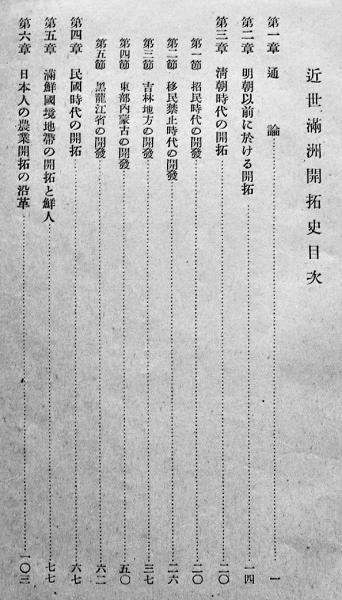 近世滿洲開拓史目次
第一章 通論……一
第二章 明朝以前に於ける開拓……一四
第三章 清朝時代の開拓……二〇
第一節 招民時代の開發……二〇
第二節 移民禁止時代の開發……二六
第三節 吉林地方の開發……三七
第四節 東部內蒙古の開發……五〇
第五節 黑龍江省の開發……六二
第四章 民國時代の開拓……六七
第五章 滿鮮國境地帶の開拓と鮮人……七七
第六章 日本人の農業開拓の沿革……一〇三